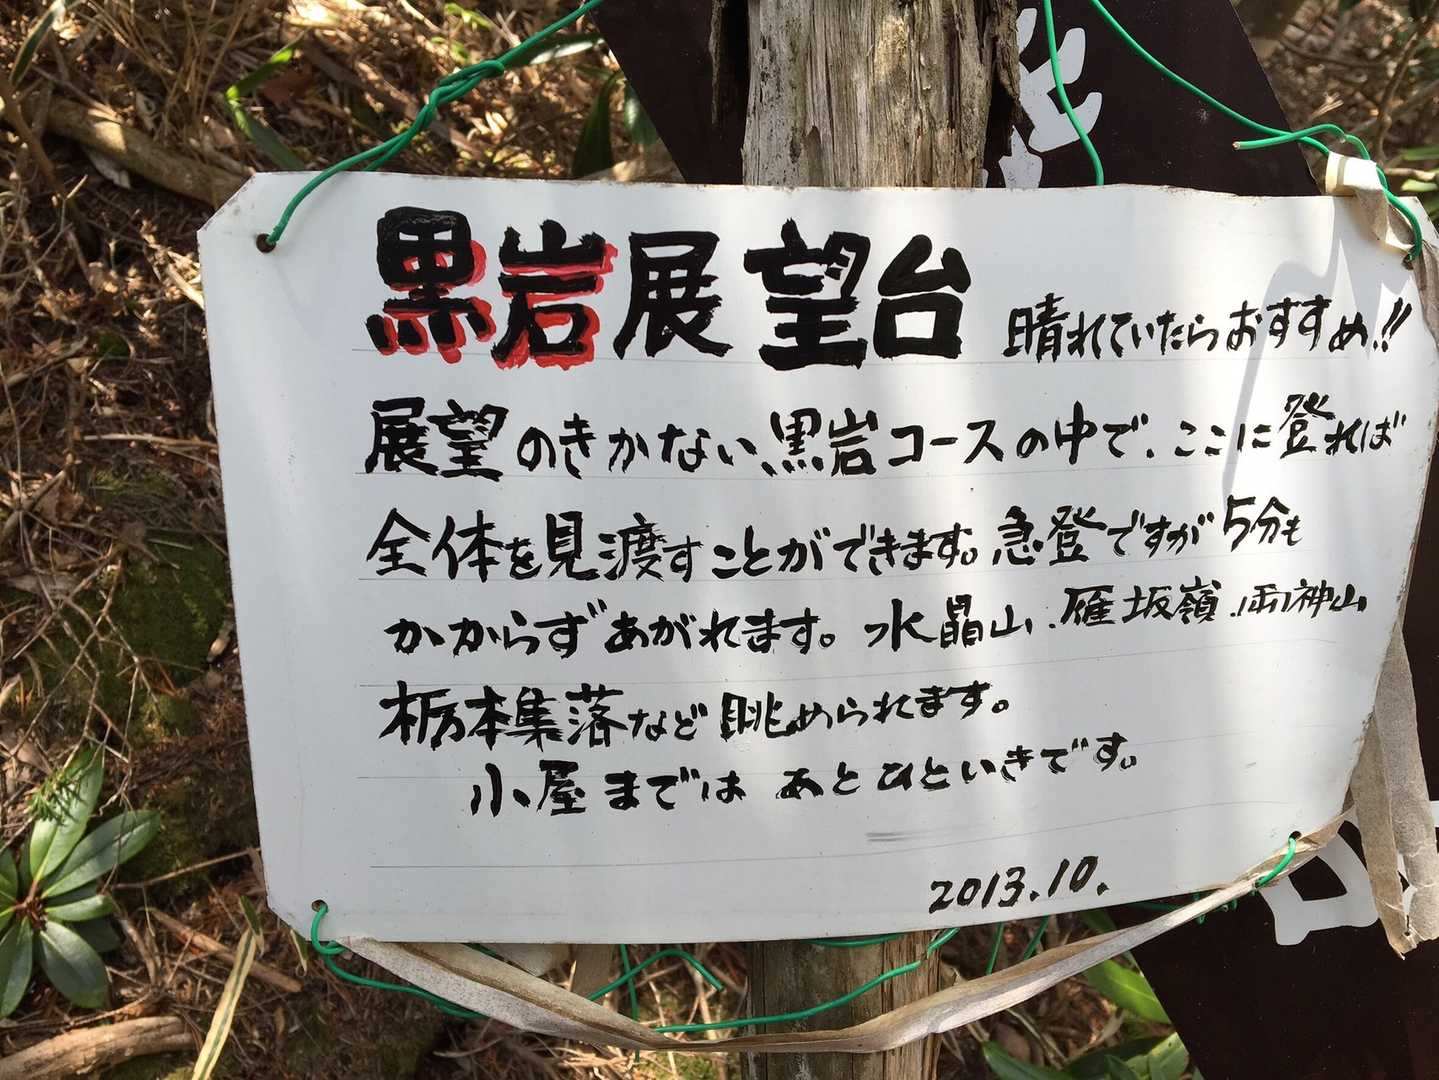 黒岩展望台 晴れていたらおすすめ!!
展望のきかない、黒岩コースの中で、ここに登れば
全体を見渡すことができます。急登ですが5分も
かからずあがれます。水晶山.雁坂嶺.両神山
栃本集落など眺められます。
小屋までは あとひといきです。
2013.10.